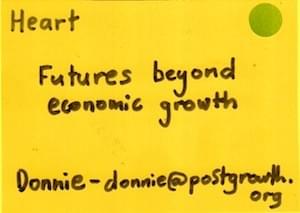 Heart
Futures beyond
economic growth
Donnie-donnie@postgrowth.
org